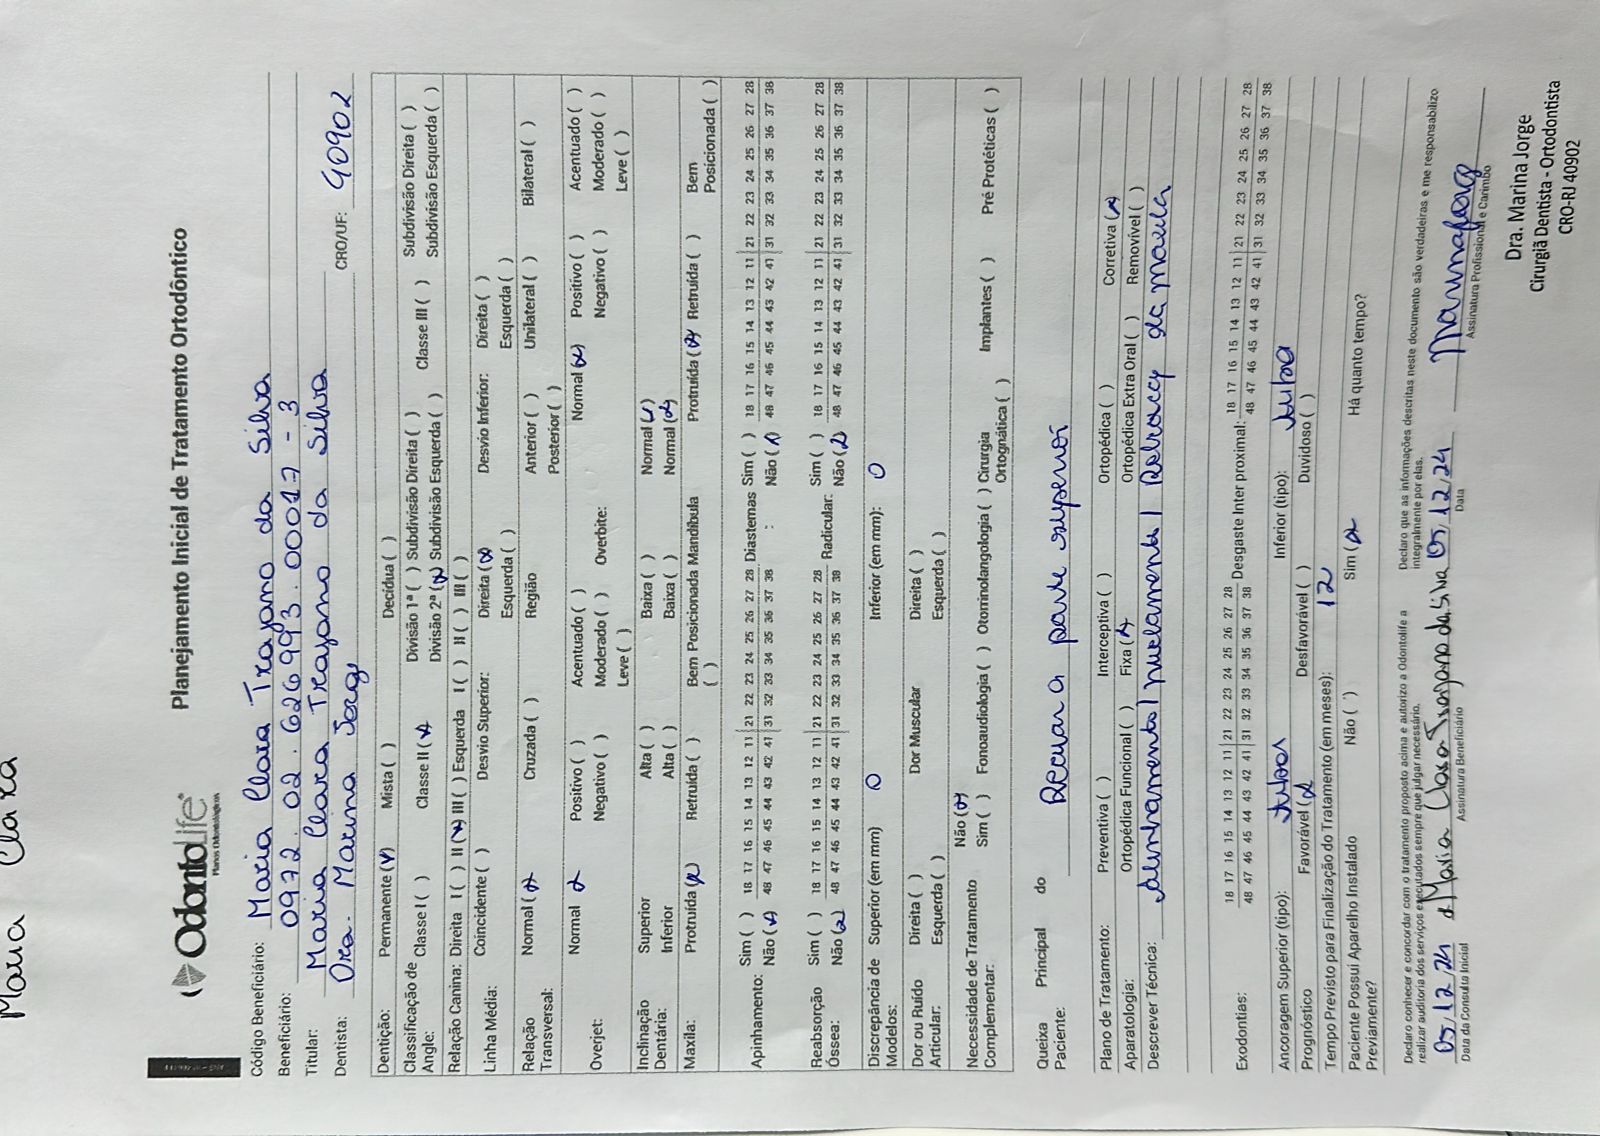 Maria Clara
OdontoLife
Planos Odontológicos
Planejamento Inicial de Tratamento Ortodôntico
Código Beneficiário: Maria Clara Trajano da Silva
Beneficiário: 0972.02.626993.00017-3
Titular: Maria Clara Trajano da Silva
Dentista: Dra. Marina Jorge CRO/UF: 40902
Dentição: Permanente (x) Mista ( ) Decídua ( )
Classificação de Angle: Classe I ( ) Classe II (x) Divisão 1ª ( ) Subdivisão Direita ( ) Classe III ( ) Subdivisão Direita ( )
Divisão 2ª (x) Subdivisão Esquerda ( ) Subdivisão Esquerda ( )
Relação Canina: Direita I ( ) II (x) III ( ) Esquerda I ( ) II ( ) III ( )
Linha Média: Coincidente ( ) Desvio Superior: Direita (x) Desvio Inferior: Direita ( )
Esquerda ( ) Esquerda ( )
Relação Transversal: Normal (x) Cruzada ( ) Região Anterior ( ) Unilateral ( ) Bilateral ( )
Posterior ( )
Overjet: Normal x Positivo ( ) Acentuado ( ) Overbite: Normal (x) Positivo ( ) Acentuado ( )
Negativo ( ) Moderado ( ) Negativo ( ) Moderado ( )
Leve ( ) Leve ( )
Inclinação Dentária: Superior Alta ( ) Baixa ( ) Normal (x)
Inferior Alta ( ) Baixa ( ) Normal (x)
Maxila: Protruída (x) Retruída ( ) Bem Posicionada ( ) Mandíbula Protruída (x) Retruída ( ) Bem Posicionada ( )
Apinhamento: Sim ( ) 18 17 16 15 14 13 12 11 | 21 22 23 24 25 26 27 28 Diastemas : Sim ( ) 18 17 16 15 14 13 12 11 | 21 22 23 24 25 26 27 28
Não (x) 48 47 46 45 44 43 42 41 | 31 32 33 34 35 36 37 38 Não (x) 48 47 46 45 44 43 42 41 | 31 32 33 34 35 36 37 38
Reabsorção Óssea: Sim ( ) 18 17 16 15 14 13 12 11 | 21 22 23 24 25 26 27 28 Radicular: Sim ( ) 18 17 16 15 14 13 12 11 | 21 22 23 24 25 26 27 28
Não (x) 48 47 46 45 44 43 42 41 | 31 32 33 34 35 36 37 38 Não (x) 48 47 46 45 44 43 42 41 | 31 32 33 34 35 36 37 38
Discrepância de Modelos: Superior (em mm) 0 Inferior (em mm): 0
Dor ou Ruído Articular: Direita ( ) Dor Muscular Direita ( )
Esquerda ( ) Esquerda ( )
Necessidade de Tratamento Complementar: Não (x)
Sim ( ) Fonoaudiologia ( ) Otorrinolangologia ( ) Cirurgia Ortognática ( ) Implantes ( ) Pré Protéticas ( )
Queixa Principal do Paciente: Recuar a parte superior
Plano de Tratamento: Preventiva ( ) Interceptiva ( ) Ortopédica ( ) Corretiva (x)
Aparatologia: Ortopédica Funcional ( ) Fixa (x) Ortopédica Extra Oral ( ) Removível ( )
Descrever Técnica: Alinhamento/nivelamento/ da maxila
Exodontias: 18 17 16 15 14 13 12 11 | 21 22 23 24 25 26 27 28 Desgaste Inter proximal: 18 17 16 15 14 13 12 11 | 21 22 23 24 25 26 27 28
48 47 46 45 44 43 42 41 | 31 32 33 34 35 36 37 38 48 47 46 45 44 43 42 41 | 31 32 33 34 35 36 37 38
Ancoragem Superior (tipo): Tubos Inferior (tipo): Tubo
Prognóstico Favorável (x Desfavorável ( ) Duvidoso ( )
Tempo Previsto para Finalização do Tratamento (em meses): 12
Paciente Possui Aparelho Instalado Previamente? Não ( ) Sim (x Há quanto tempo?
Declaro conhecer e concordar com o tratamento proposto acima e autorizo a Odontolife a realizar auditoria dos serviços executados sempre que julgar necessário.
Declaro que as informações descritas neste documento são verdadeiras e me responsabilizo integralmente por elas.
05/12/24 Maria Clara Trajano da Silva 05/12/24 Marina Jorge
Data da Consulta Inicial Assinatura Beneficiário Data Assinatura Profissional e Carimbo
Dra. Marina Jorge
Cirurgiã Dentista - Ortodontista
CRO-RJ 40902